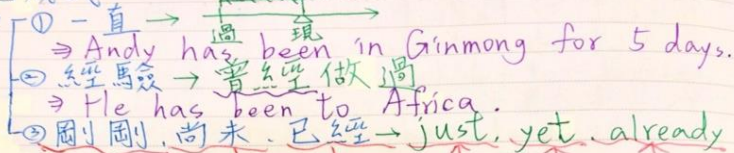 ① 一直 → 過 現
⇒ Andy has been in Ginmong for 5 days.
② 經驗 → 曾經做過
⇒ He has been to Africa.
③ 剛剛, 尚未、已經 → just, yet, already